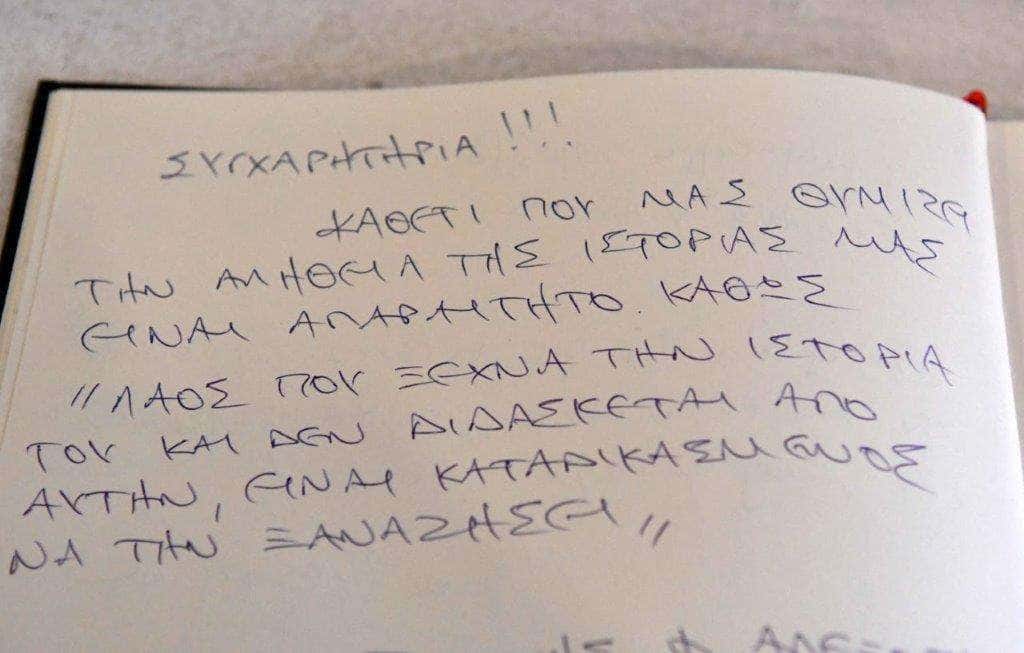 ΣΥΓΧΑΡΗΤΗΡΙΑ !!!
ΚΑΘΕΤΙ ΠΟΥ ΜΑΣ ΘΥΜΙΖΕΙ
ΤΗΝ ΑΛΗΘΕΙΑ ΤΗΣ ΙΣΤΟΡΙΑΣ ΜΑΣ
ΕΙΝΑΙ ΑΠΑΡΑΙΤΗΤΟ. ΚΑΘΩΣ
"ΛΑΟΣ ΠΟΥ ΞΕΧΝΑ ΤΗΝ ΙΣΤΟΡΙΑ
ΤΟΥ ΚΑΙ ΔΕΝ ΔΙΔΑΣΚΕΤΑΙ ΑΠΟ
ΑΥΤΗΝ, ΕΙΝΑΙ ΚΑΤΑΔΙΚΑΣΜΕΝΟΣ
ΝΑ ΤΗΝ ΞΑΝΑΖΗΣΕΙ"